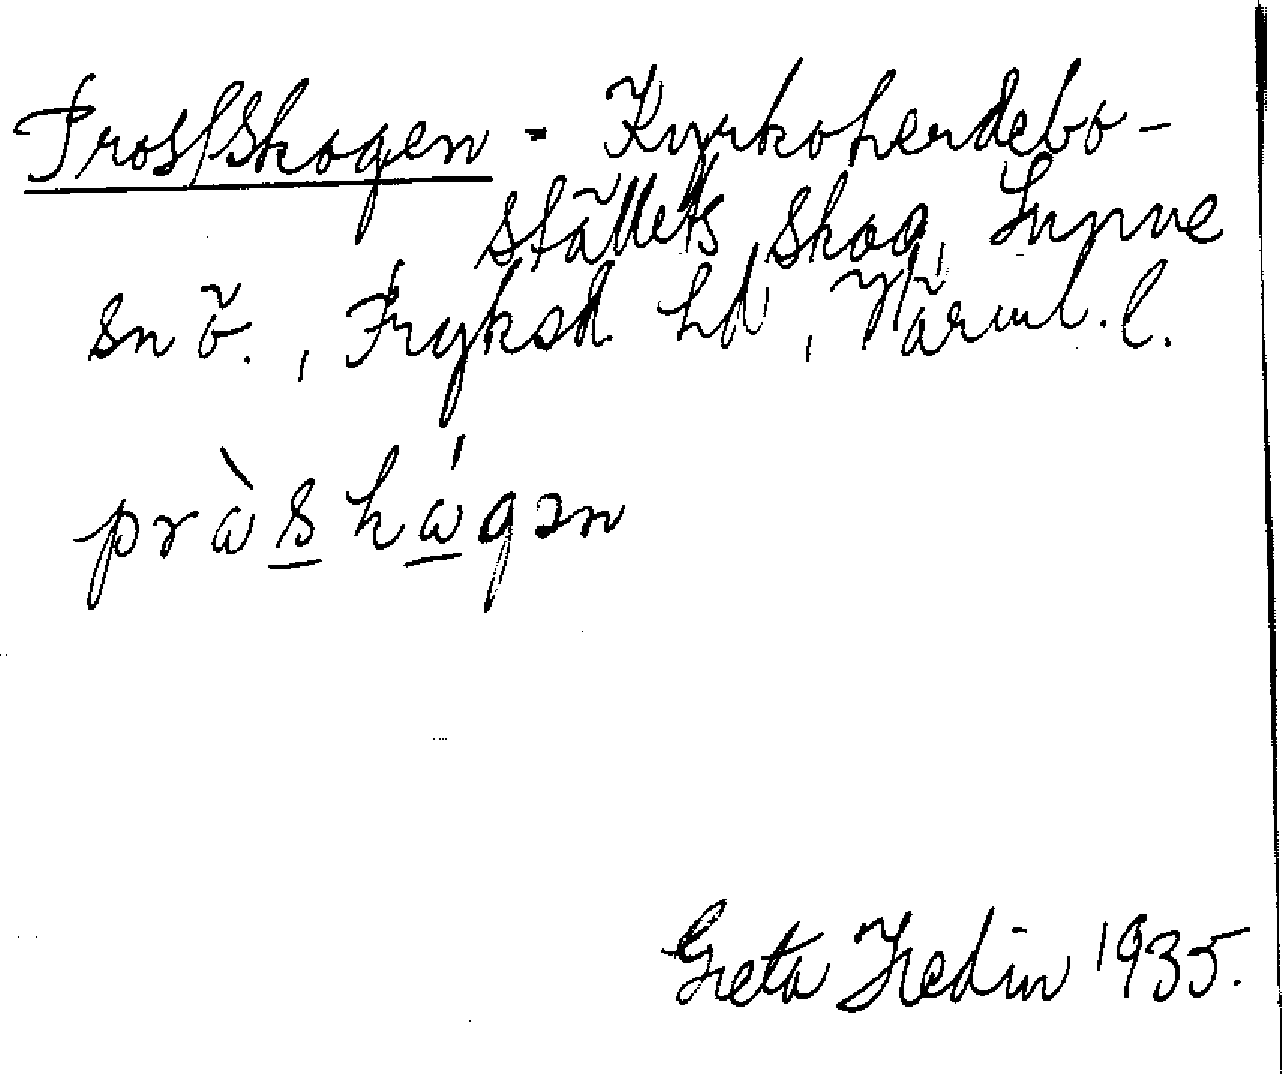 Prostskogen - Kyrkoherdebo-
ställets skog, Sunne
sn ö., Fryksd. hd, Värml. l.
pràskágən
Greta Hedin 1935.